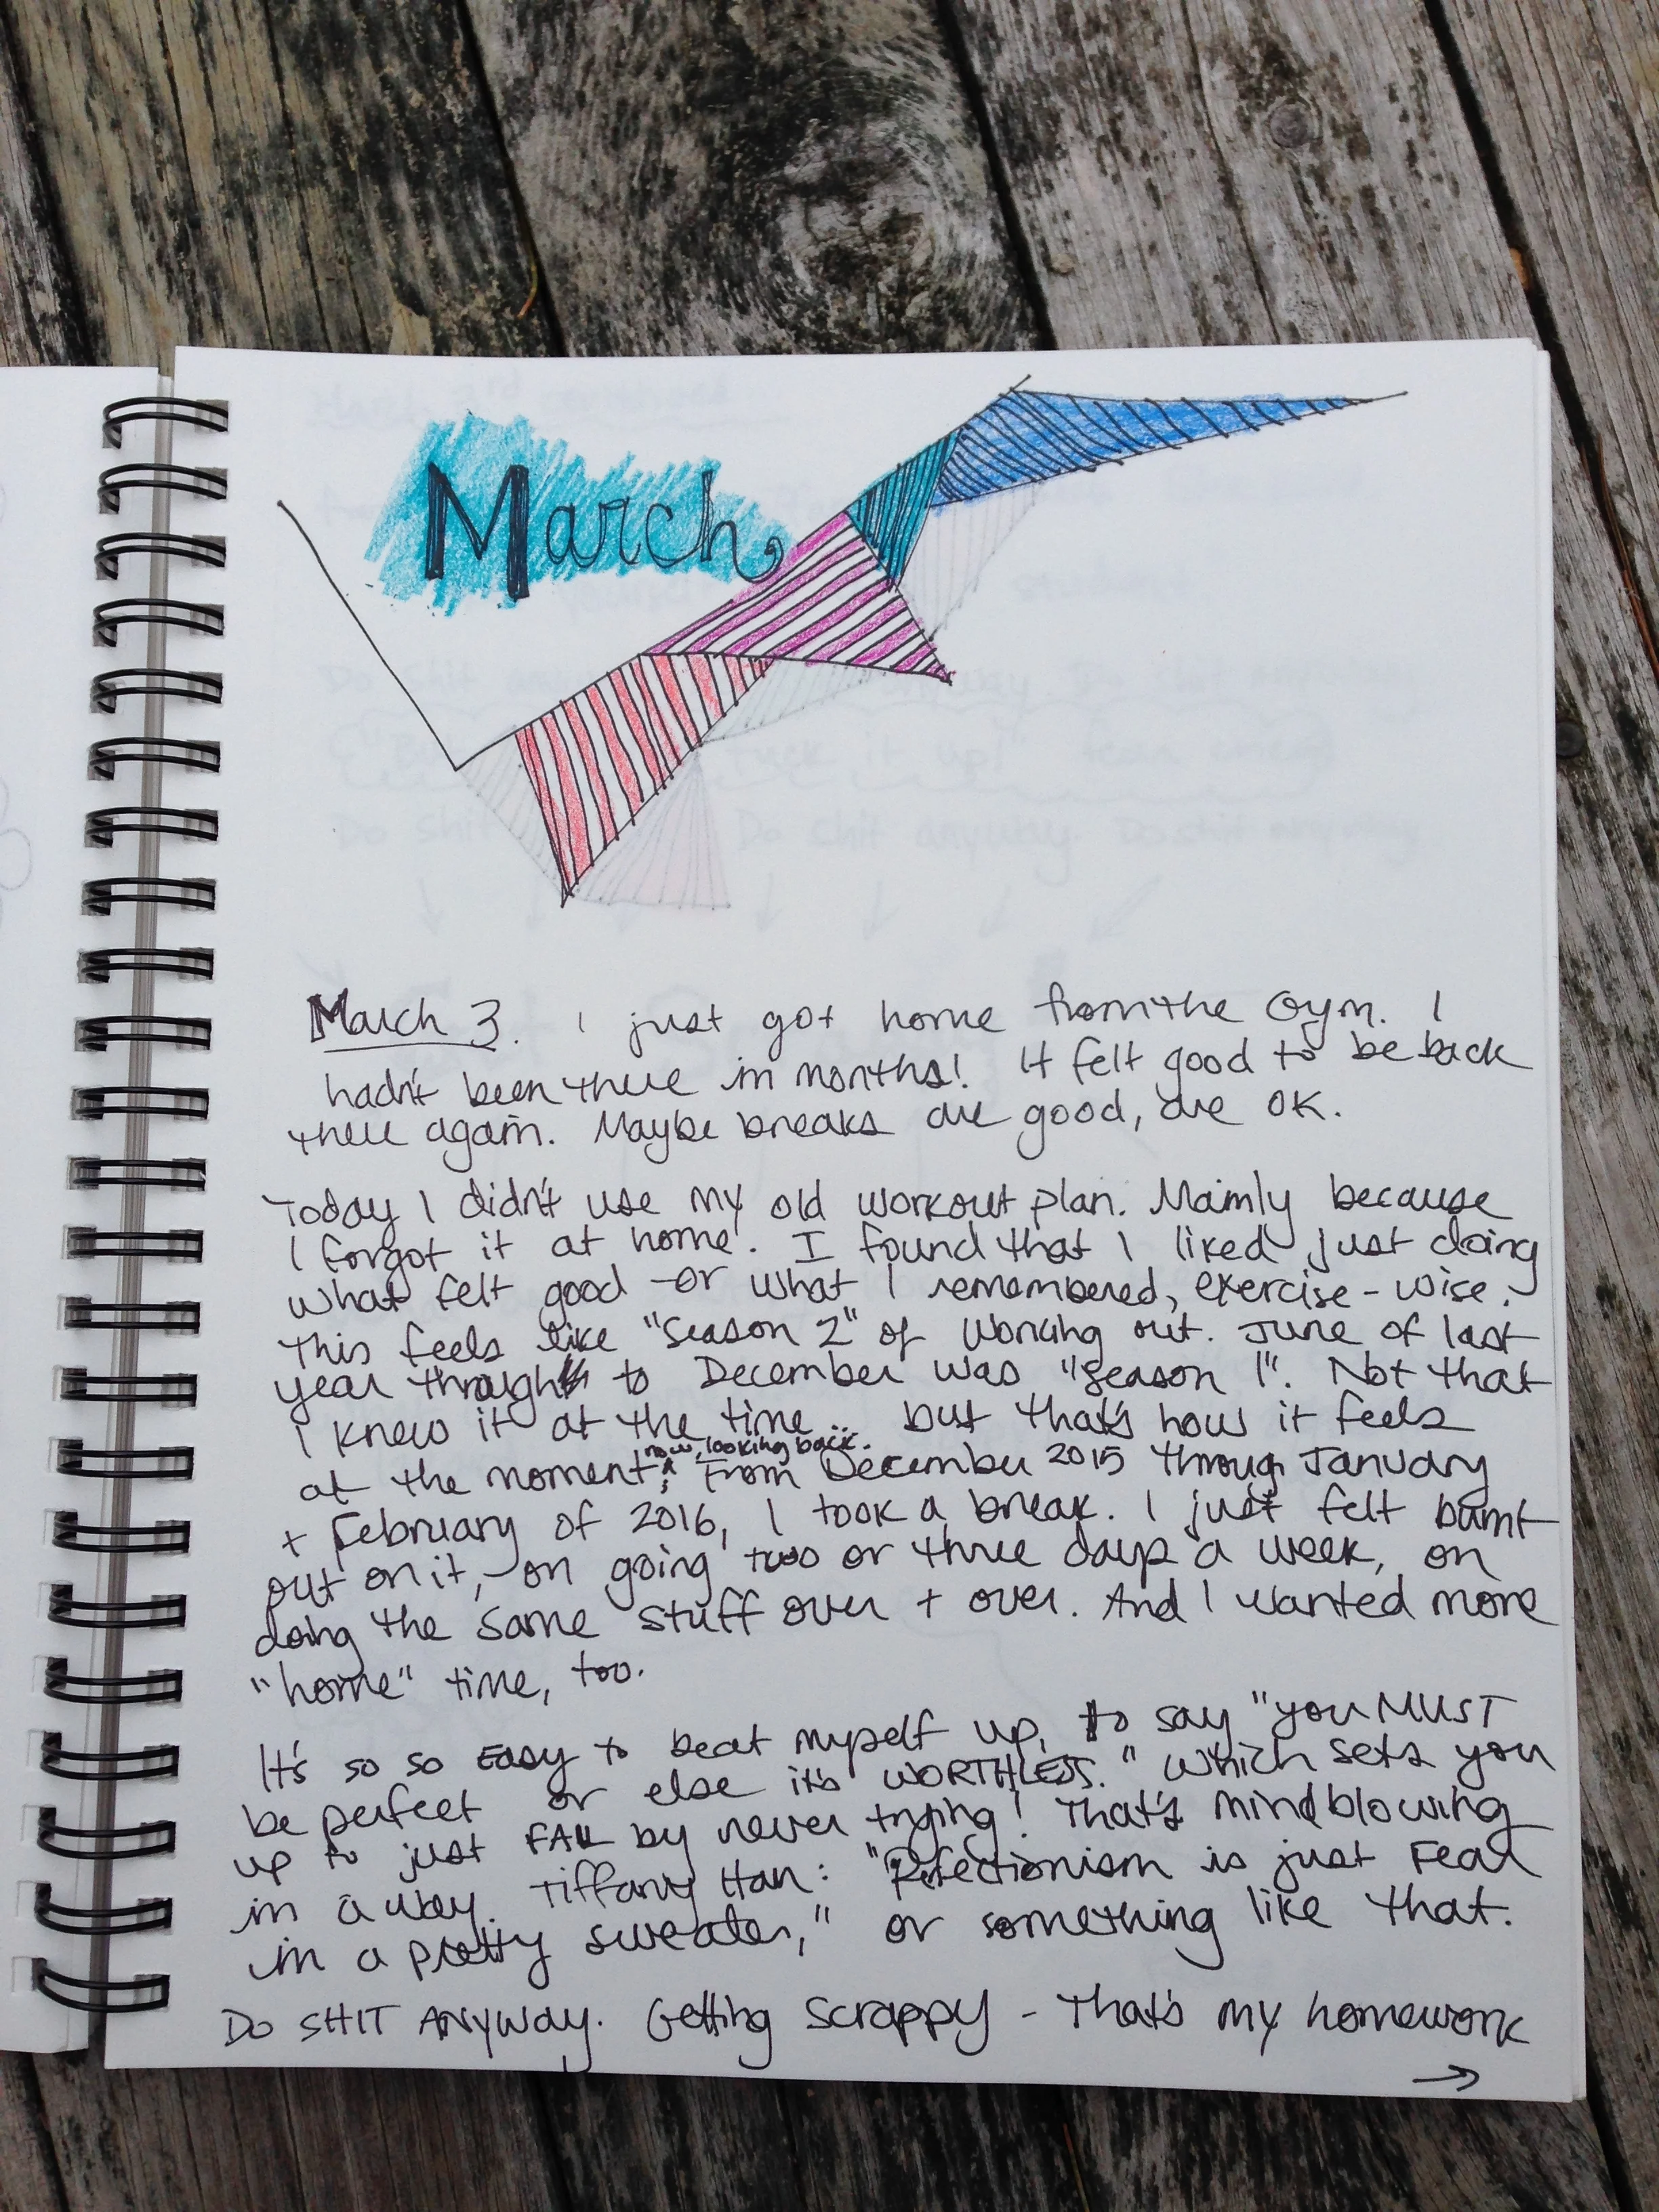 March
March 3. I just got home from the gym. I
hadn't been there in months! It felt good to be back
there again. Maybe breaks are good, are OK.
Today I didn't use my old workout plan. Mainly because
I forgot it at home. I found that I liked just doing
what felt good - or what I remembered, exercise-wise.
This feels like "Season 2" of working out. June of last
year through to December was "Season 1". Not that
I knew it at the time... but that's how it feels
now, looking back.
at the moment. From December 2015 through January
+ February of 2016, I took a break. I just felt burnt
out on it, - on going two or three days a week, on
doing the same stuff over + over. And I wanted more
"home" time, too.
It's so so EASY to beat myself up, to say "you MUST
be perfect or else it's WORTHLESS." Which sets you
up to just FAIL by never trying! That's mindblowing
in a way. Tiffany Han: "Perfectionism is just Fear
in a pretty sweater," or something like that.
DO SHIT ANYWAY. Getting scrappy - That's my homework
→